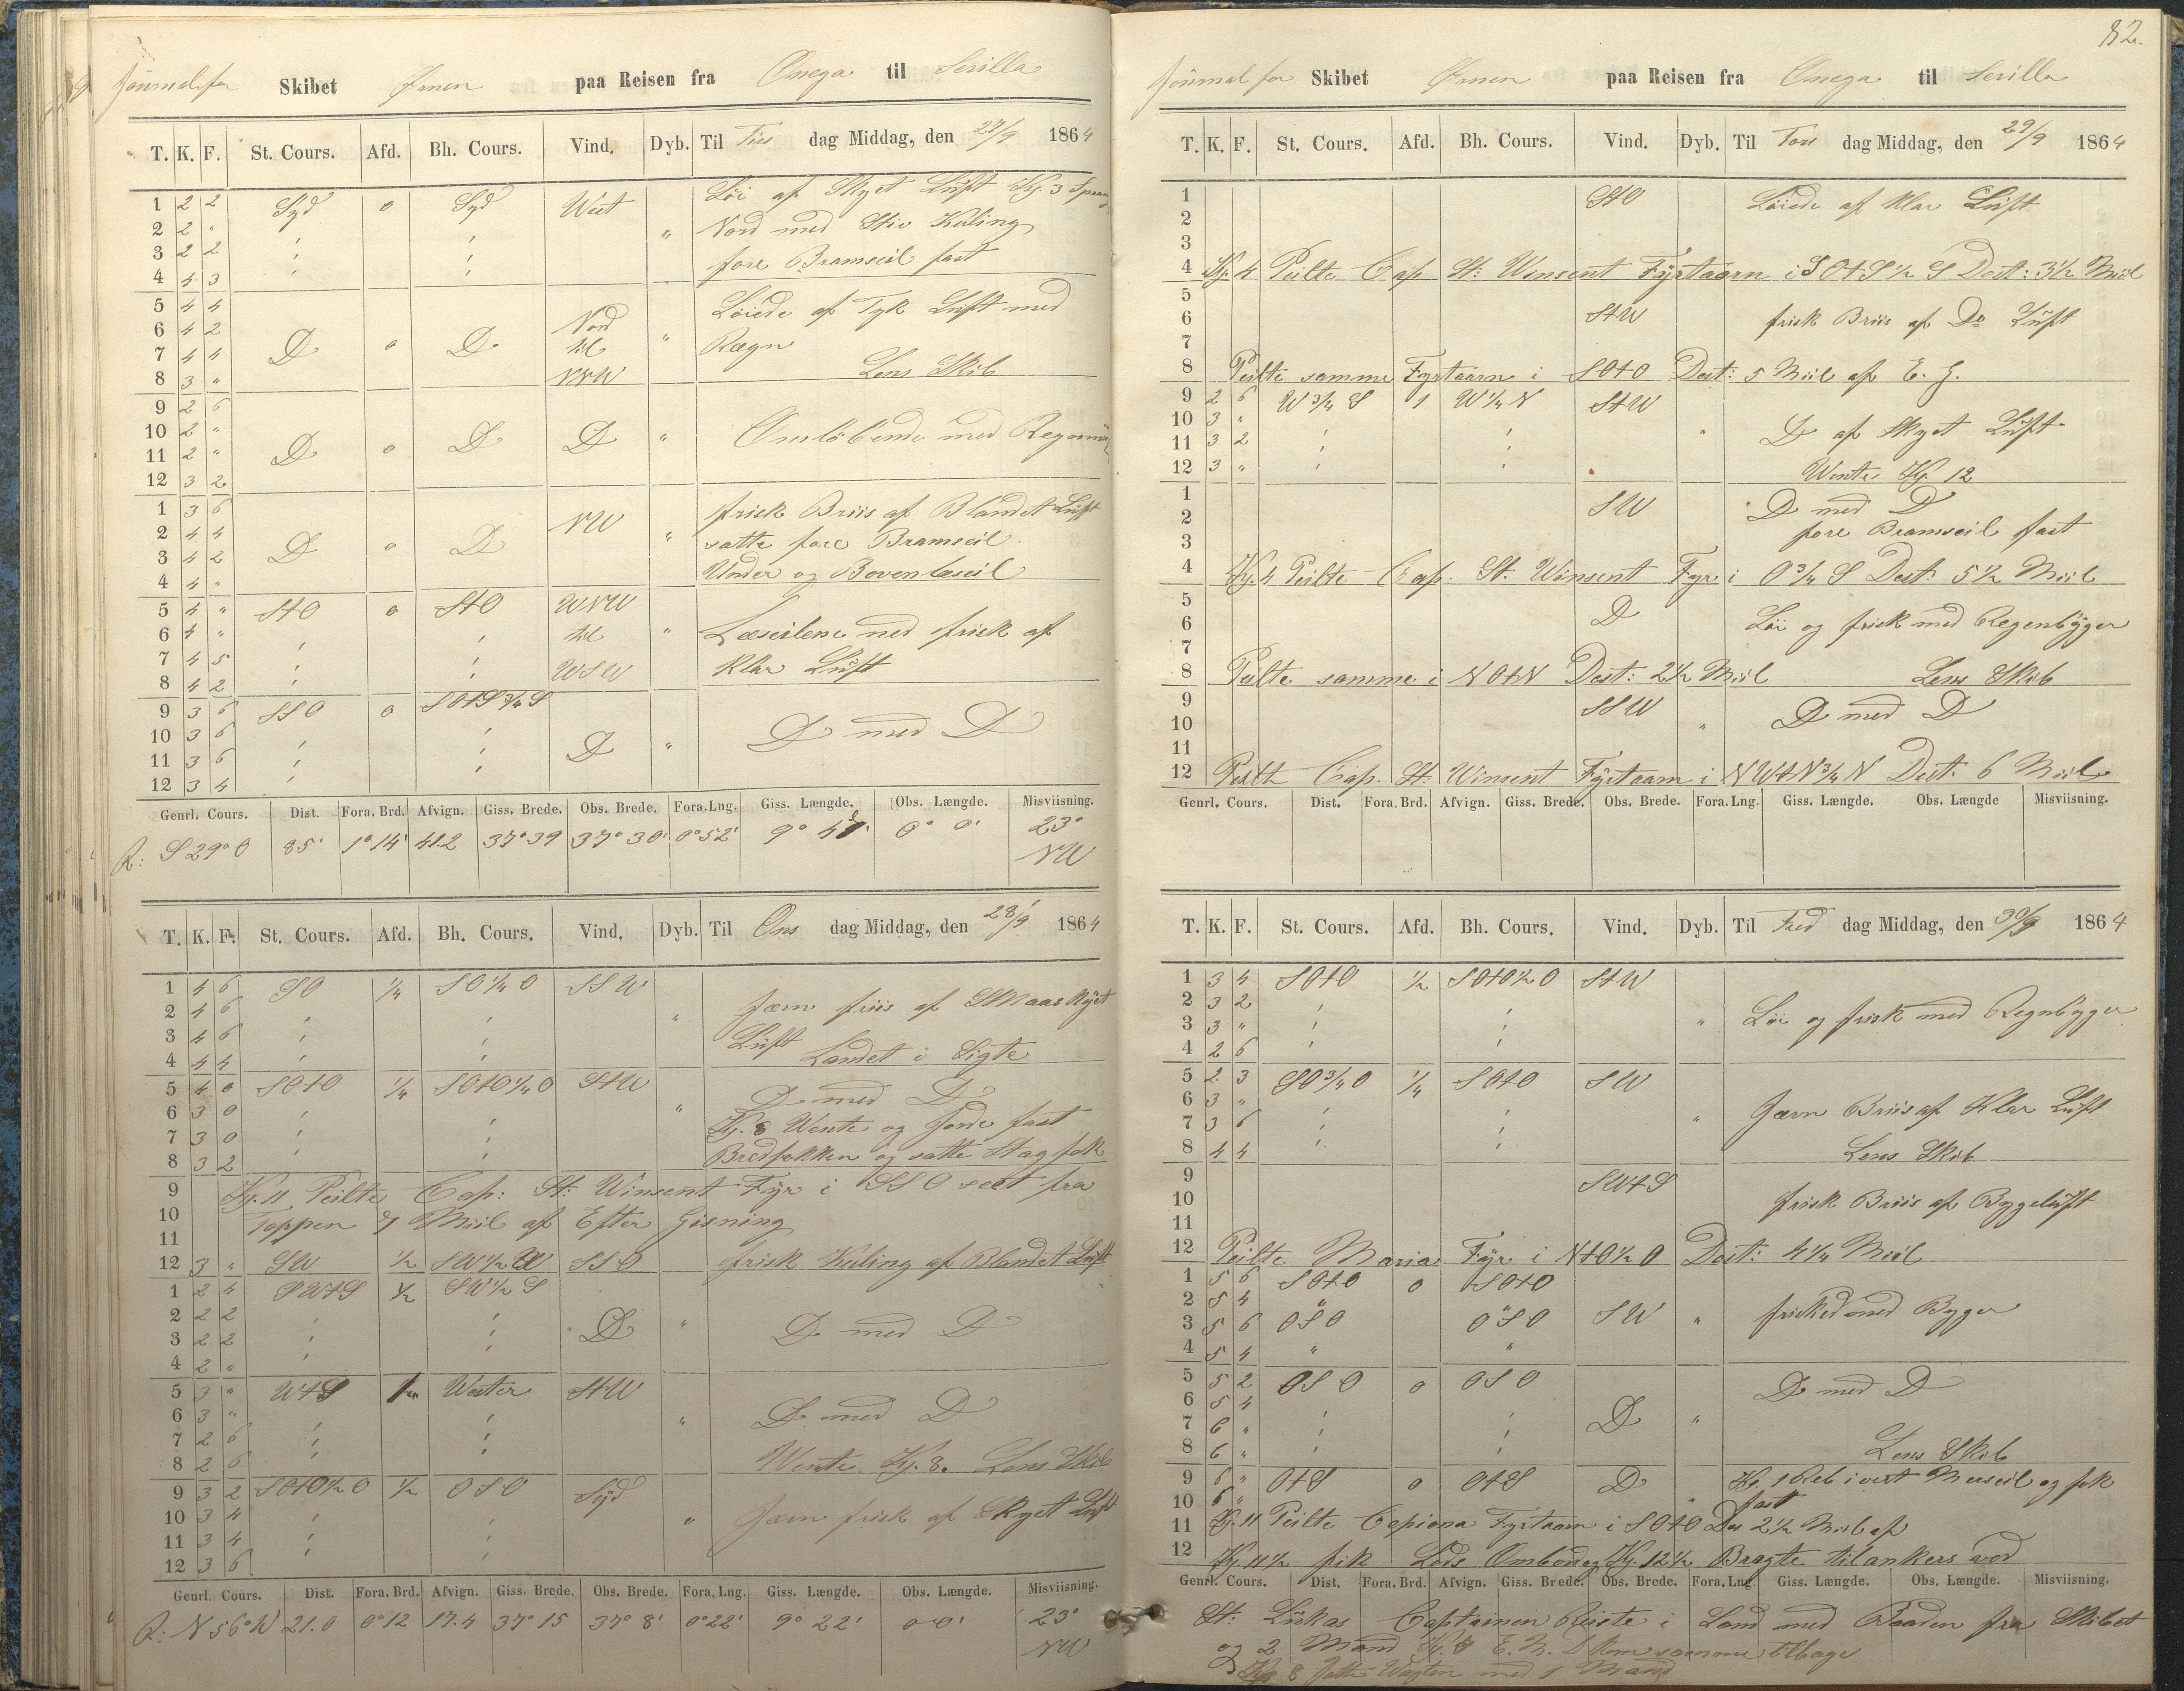 Journal for Skibet Ørnen paa Reisen fra Omega til Sevilla
T. K. F. St. Cours. Afd. Bh. Cours. Vind. Dyb. Til Tirs dag Middag, den 27/9 1864
1 2 2 Syd 0 Syd West Löi af Skyet Lüft Kl. 3 Sprang
2 2 " " Nord med Stiv Kuling
3 2 2 fore Bramseil fast
4 4 3
5 4 4 Löiede af Tyk Lüft med
6 4 2 D 0 D Nord til NNW " Rægn
7 4 4
8 3 " Lens Skib
9 2 6
10 2 " D 0 D D " Omlöbende med
11 2 "
12 3 2
1 3 6 NW frisk Briis af Blandet Lüft
2 4 4 D 0 D " satte fore Bramseil
3 4 2
4 4 " Under og Bovenlæseil
5 4 " StO 0 StO WNW
6 4 " til " Læseilene ned frisk af
7 4 5 WSW klar Lüft
8 4 2
9 3 6 SSO 0 SOtS 3/4 S
10 3 6 D " D med D
11 3 6
12 3 4
Genrl. Cours. Dist. Fora. Brd. Afvign. Giss. Brede. Obs. Brede. Fora. Lng. Giss. Længde. Obs. Længde. Misviisning.
R: S 29° O 85' 1° 14' 41.2 37° 39 37° 30' 0° 52' 9° 0° 0' 23° NW
T. K. F. St. Cours. Afd. Bh. Cours. Vind. Dyb. Til Ons dag Middag, den 28/9 1864
1 4 6 SO 1/4 SO 1/4 O SSW
2 4 6 " Jæm friis af Smaaskyet
3 4 6 Lüft
4 4 4 Landet i Sigte
5 4 0 SOtO 1/4 SOtO 1/4 O StW D med D
6 3 0 " Kl. 8 Wente og Jorde fast
7 3 0
8 3 2 Bredfokken og satte Stagfok
9 Kl. 11 Peilte Cap: St: Winsent Fÿr i SSO seet fra
10 Toppen 7 Miil af Efter Gisning
11
12 3 " SW 1/2 SW 1/2 W SSO frisk Kuling af Blandet Lüft
1 2 4 SWtS 1/2 SW 1/2 S
2 2 2 D " D med D
3 2 2
4 2 "
5 3 " WtS Wester StW
6 3 " " D med D
7 2 6
8 2 6 Wente Kl. 8. Lens Skib
9 3 2 SOtO 1/2 O 1/2 OSO Sÿd
10 3 4 " Jæm frisk af Skyet Lüft
11 3 4
12 3 6
Genrl. Cours. Dist. Fora. Brd. Afvign. Giss. Brede. Obs. Brede. Fora. Lng. Giss. Længde. Obs. Længde. Misviisning.
R: N 56° W 21.0 0° 12 17.4 37° 15 37° 8' 0° 22' 9° 22' 0 0' 23° NW
82.
Journal for Skibet Ørnen paa Reisen fra Omega til Sevilla
T. K. F. St. Cours. Afd. Bh. Cours. Vind. Dyb. Til Tors dag Middag, den 29/9 1864
1 StO Löiede af klar Lüft
2
3
4 Kl. 4 Peilte Cap St: Winsent Fÿrtaarn i SOtS 1/2 S Dest: 3 1/2 Miil
5
6 StW frisk Briis af Do Lüft
7
8 Peilte samme Fyrtaarn i SOtO Dest: 5 Miil af E. G.
9 2 6 W 3/4 S 1 W 1/4 N StW
10 3 " " D af Skyet Lüft
11 3 2
12 3 " Wente Kl. 12
1 SW D med D
2
3 fore Bramseil fast
4 Kl. 4 Peilte Cap. St. Winsent Fyr i O 3/4 S Dest: 5 1/2 Miil
5
6 D Löi og frisk med Regenbÿger
7
8 Peilte samme i NOtN Dest: 2 1/2 Miil Lens Skib
9 SSW D med D
10 "
11
12 Peilte Cap. St: Winsent Fÿrtaarn i NWtN 3/4 N Dest: 6 Miil
Genrl. Cours. Dist. Fora. Brd. Afvign. Giss. Brede. Obs. Brede. Fora. Lng. Giss. Længde. Obs. Længde Misviisning.
T. K. F. St. Cours. Afd. Bh. Cours. Vind. Dyb. Til Fred dag Middag, den 30/9 1864
1 3 4 SOtO 1/2 SOtO 1/2 O StW
2 3 2
3 3 " " Löi og frisk med Regnbÿger
4 2 6
5 2 3 SO 3/4 O 1/4 SOtO SW
6 3 "
7 3 6 " Jæm Briis af Klar Lüft
8 4 4 Lens Skib
9 SWtS
10 frisk Briis af Bygelüft
11
12 Peilte Maria Fÿr i NtO 1/2 O Dest: 4 1/4 Miil
1 5 6 SOtO 0 SOtO
2 5 4 " "
3 5 6 OSO OSO SW " frisked med Byger
4 5 4 " "
5 5 2 OSO 0 OSO D med D
6 5 4
7 6 " D "
8 6 " Lens Skib
9 6 " OtS 0 OtS D Kl. 1 Reb i vert Merseil og fok
10 6 " fast
11 Kl. 11 Peilte Fyrtaarn i SOtO Des 2 1/2 Miil af
12 Kl. 11 1/2 fik Lods Ombord og Kl. 12 1/2 Bragte til ankers ved
Genrl. Cours. Dist. Fora. Brd. Afvign. Giss. Brede. Obs. Brede. Fora. Lng. Giss. Længde. Obs. Længde. Misviisning.
St: Lükas Captainen Reiste i Land med Baaden fra Skibet
og 2 Mand Kl. 8 E. M. kom samme tilbage
Kl 8 Satte Wagten med 1 Mand